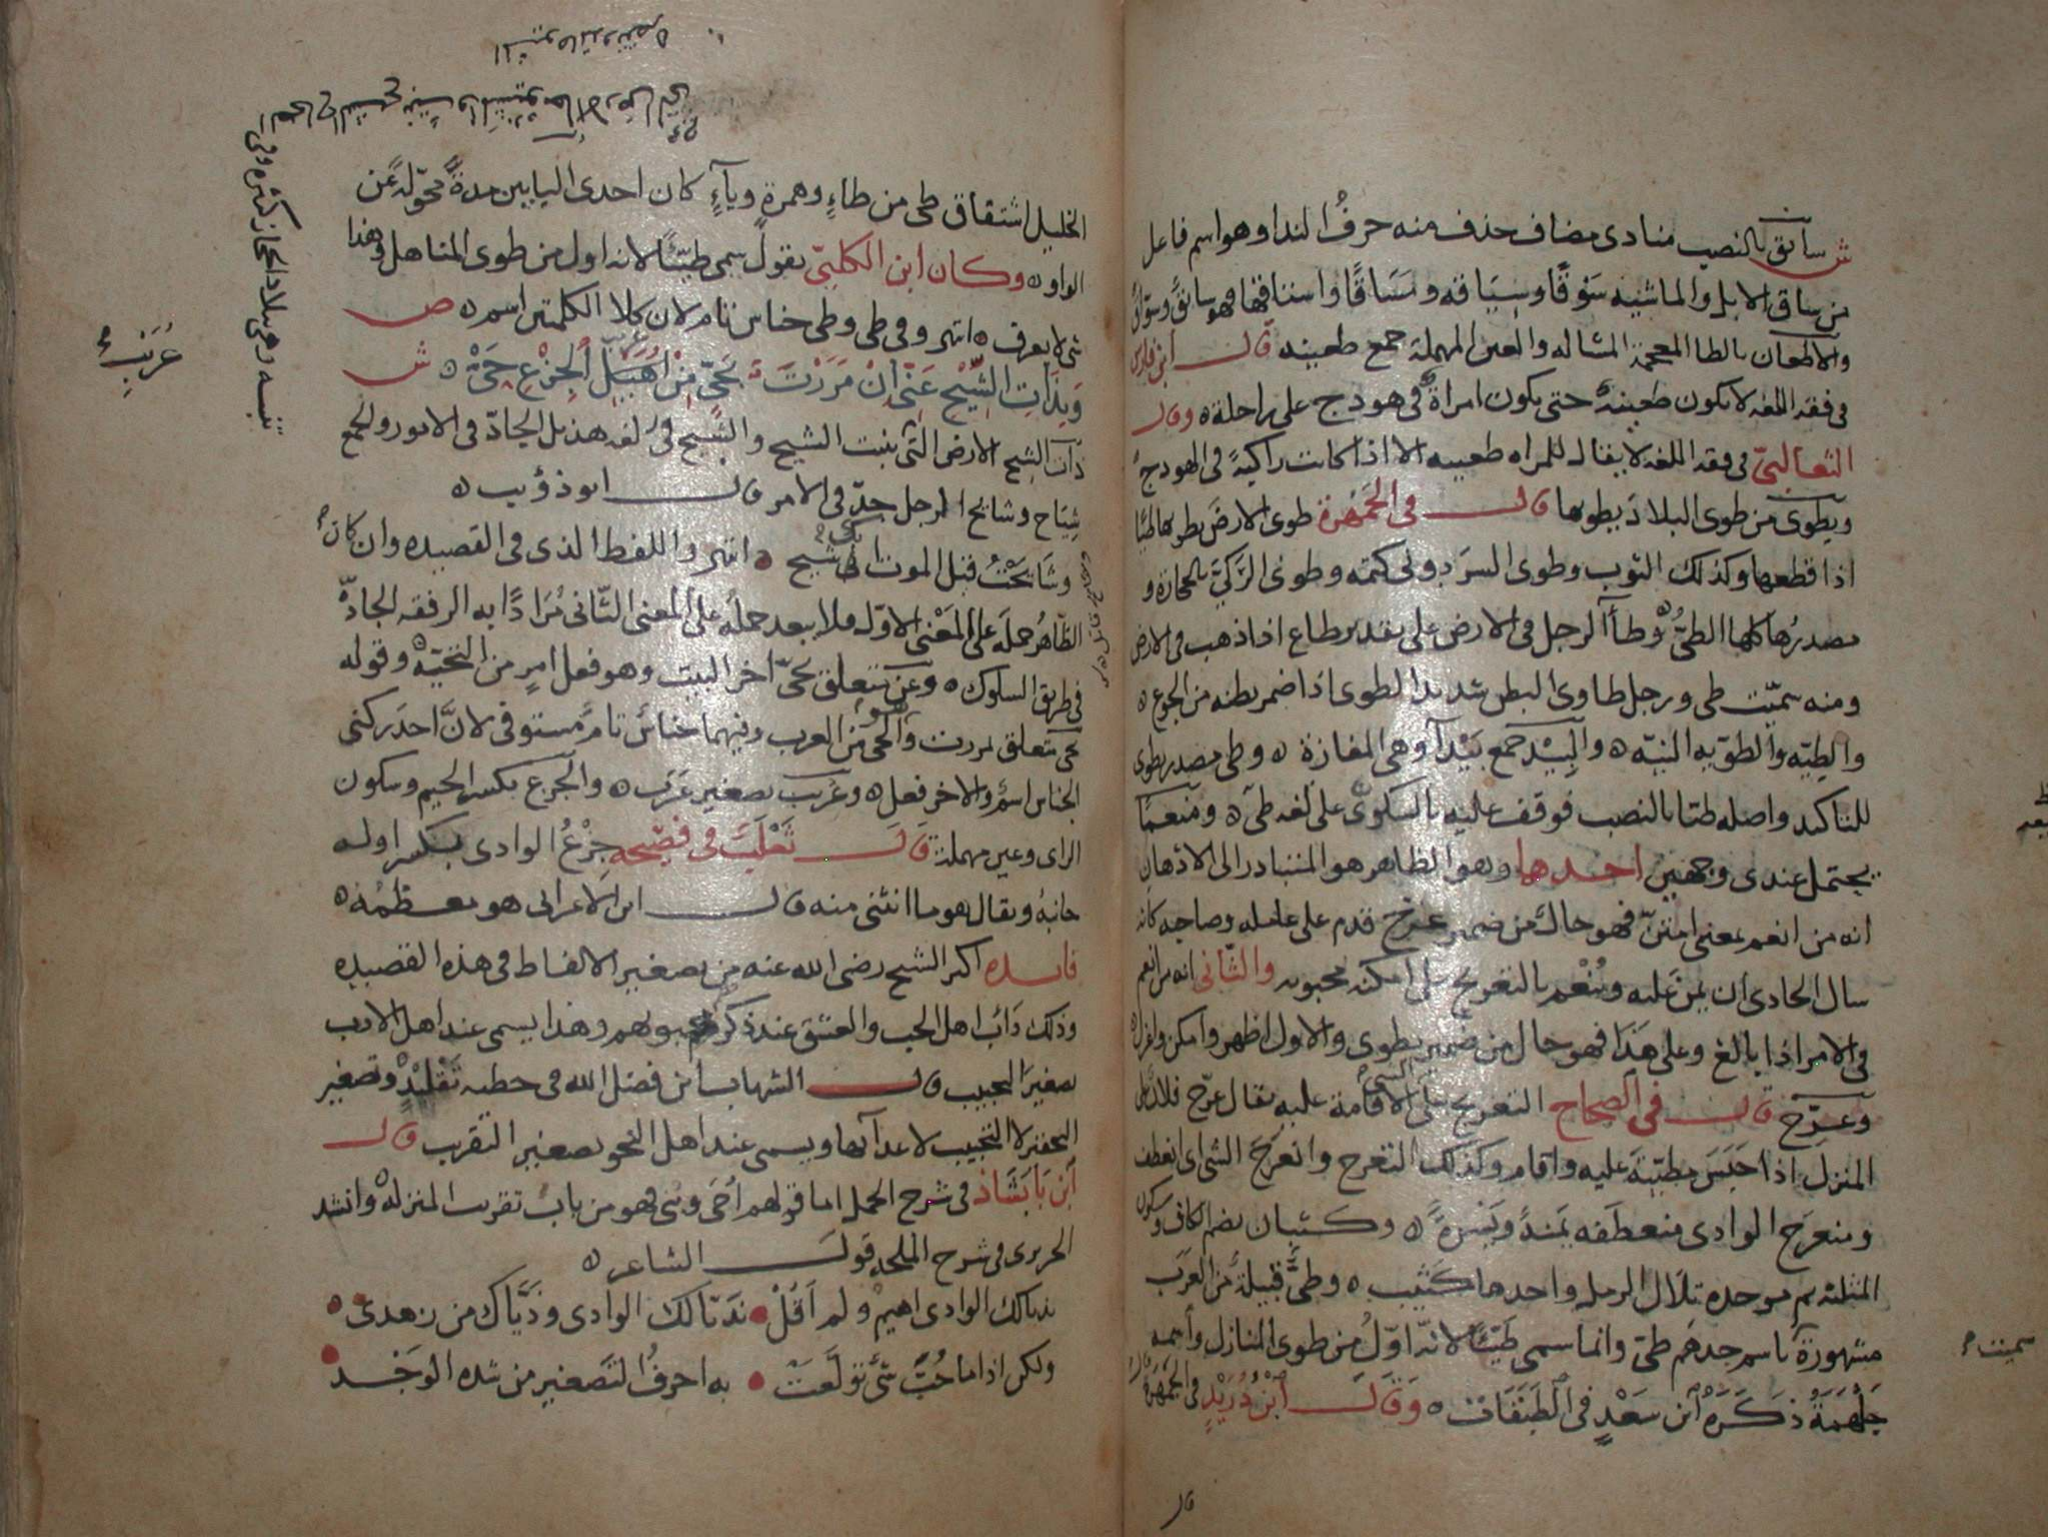 ش سائق بالنصب منادى مضاف حذف منه حرف الندا وهو اسم فاعل
من ساق الابل والماشيه سَوْقًا وسِيَاقه ومَسَاقًا واستاقها فهو سائقٌ وسوّاقٌ
والاظعان بالظا المعجمة المشاله والعين المهملة جمع ظعينه قال ابن فارس
فى فقه اللغه لا يكون ظعينة حتى يكون امراةٌ فى هودج على راحلة ه وقال
الثعالبىّ فى فقه اللغه لا يقال للمراه ظعينه الا اذا كانت راكبةً فى الهودج
ويطوى من طوى البلاد يطويها قال فى الجمهرة طوى الارضَ يطويها طيًّا
اذا قطعها وكذلك الثوب وطوى السرّ دونى كتمه وطوى الرّكىّ بالحجارة و
مصدرُها كلها الطىّ ه وطأ الرجل فى الارض على تقدير طاع اذا ذهب فى الارض
ومنه سمّيت طى ورجل طاوى البطن شديد الطوى اذا ضمر بطنه من الجوع ه
والطِيّه والطَويه النيّه ه والبِيْد جمع بَيْدآ وهى المفازة ه وطى مصدر يطوى
للتاكيد واصله طيا بالنصب فوقف عليه بالسكون على لغه طىّ ه ومنعمًا
يحتمل عندى وجهين احدهما وهو الظاهر هو المتبادر الى الاذهان
انه من انعم بمعنى امتنّ فهو حالٌ من ضمير عرّج قدم على عامله وصاحبه كانه
سال الحادى ان يمن عليه ويُنْعم بالتعريج على امكنه محبوبه والثّانى انه من انعم
فى الامر اذا بالغ وعلى هَذَا فهو حال من ضمير يطوى والاول اظهر وامكن
وعَرِّج قال فى الصحاح التعريج على الشى الاقامة عليه يقال عرّج فلان على
المنزل اذا حَبَسَ مطيّتهَ عليه واقام وكذلك التعرج وانعرج الشى اى انعطف
ومنعرَج الوادى منعطفه يَمنةً ويَسْرةً ه وكثبان بضم الكاف وسكون
المثلثه ثم موحده تلال الرمل واحدها كَثيب ه وطىّ قبيلةٌ من العَرَب
مشهورة باسم جدهم طى وانما سمى طَيّئًا لانه اوّلُ من طوى المنازل واسمه
جَلْهَمَةُ ذكَرَهُ ابن سَعْدٍ فى الطَبَقَات ه وَقَالَ ابْنُ دُرَيْدٍ فى الجمهرة
قال
سميت
الخليل اشتقاق طى من طاءٍ وهمزةٍ وياءٍ كان احدى اليايين مدةً محوّلة عَن
الواو ه وكان ابن الكلبىّ يقول سمى طيّئًا لانه اول من طوى المناهل وهذا
شى لا يعرف ه انتهى وفى طى وطى جناس تام لان كلا الكلمتين اسم ه ص
وَبِذَاتِ الشِّيْحِ عَنّى اِنْ مَرَرْتَ بَحَىّ مِنْ عُرَيْبِ الْجِزْعِ حَىْ ه ش
ذات الشيح الارض التى ينبت الشيح والشيح فى لغه هذيل الجادّ فى الامور والجمع
شِيَاح وشايح الرجل جدّ فى الامر قال ابو ذؤيب ه
وشَايَحْتُ قبل الموت انى شيح انتهى واللفظ الذى فى القصيده وان كان
الظّاهرُ حملَه على المَعْنى الاوّل فلا يبعد حمله على المعنى الثّانى مُرَادًا به الرفقه الجادّة
فى طريق السلوك ه وعن تتعلق بحىّ اخر البيت وهو فعل امرٍ من التحيّة ه وقوله
بحى متعلق بمررت والحى من العرب وفيهما جناسٌ تامٌ مستوفى لانَّ احدَ ركنى
الجناس اسمٌ والاخر فعل ه وعُرَيب تصغير عَرَب ه والجزع بكسر الجيم وسكون
الزاى وعين مهملة قال ثَعْلَبٌ فى فصيحه جِزْعُ الوادى بكسر اوله
جانبُه ويقال هو ما انثنى منه قال ابن الاعرابى هو معظمُه ه
فايده اكثر الشيخ رضى الله عنه من تصغير الالفاظ فى هذه القصيده
وذلك دَأبُ اهل الحب والعشق عند ذكر محبوبهم وهذا يسمى عند اهل الادب
تصغيرَ التحبيب قال الشهاب ابن فضل الله فى خطبه تَقْليدٍ وتصغير
التحقير لا التحبيب لاعدآئها ويسمى عند اهل النحو تصغير التقريب قال
ابن بَابَشَاذ فى شرح الجمل اما قولهم اُخَى وبُنى فهو من باب تقريب المنزله وانشد
الحريرى فى شرح الملحه قولَ الشاعر ه
بذيالك الوادى اهيمُ ولم اَقُلْ بذيّالك الوادى وذَيّاك من زهدى ه
ولكن اذا ما حُبَّ شىٌ تولّعَت به احرفُ التصغير من شده الوَجْد
عُرَيْبِ